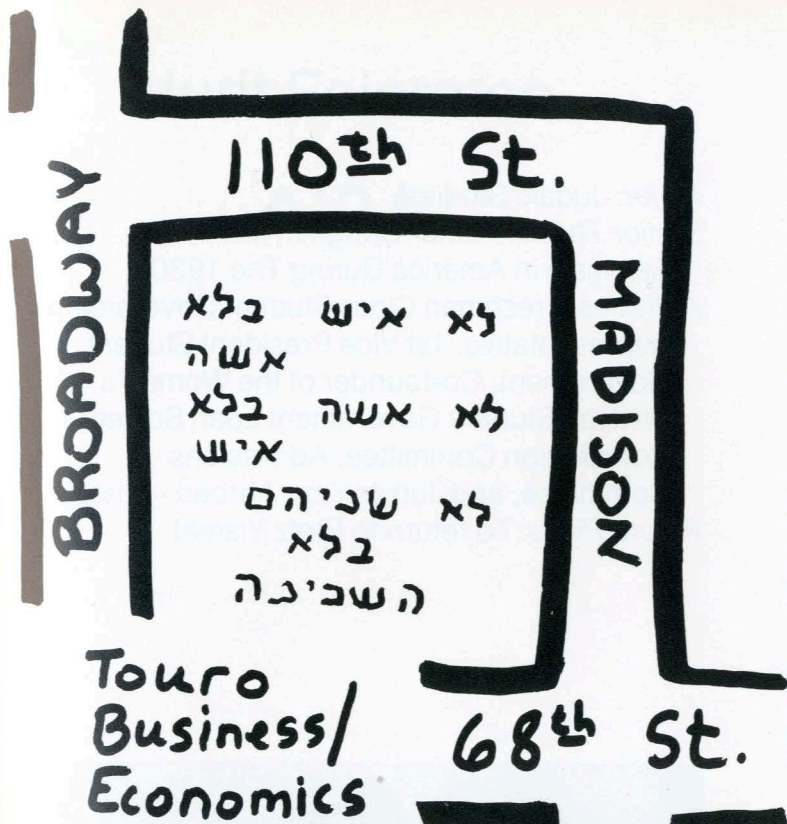 110th St.
BROADWAY
MADSON
לא איש בלא
אשה
לא אשה בלא
איש
לא שניהם
בלא
השכינה
Touro
Business/
Economics
68th St.